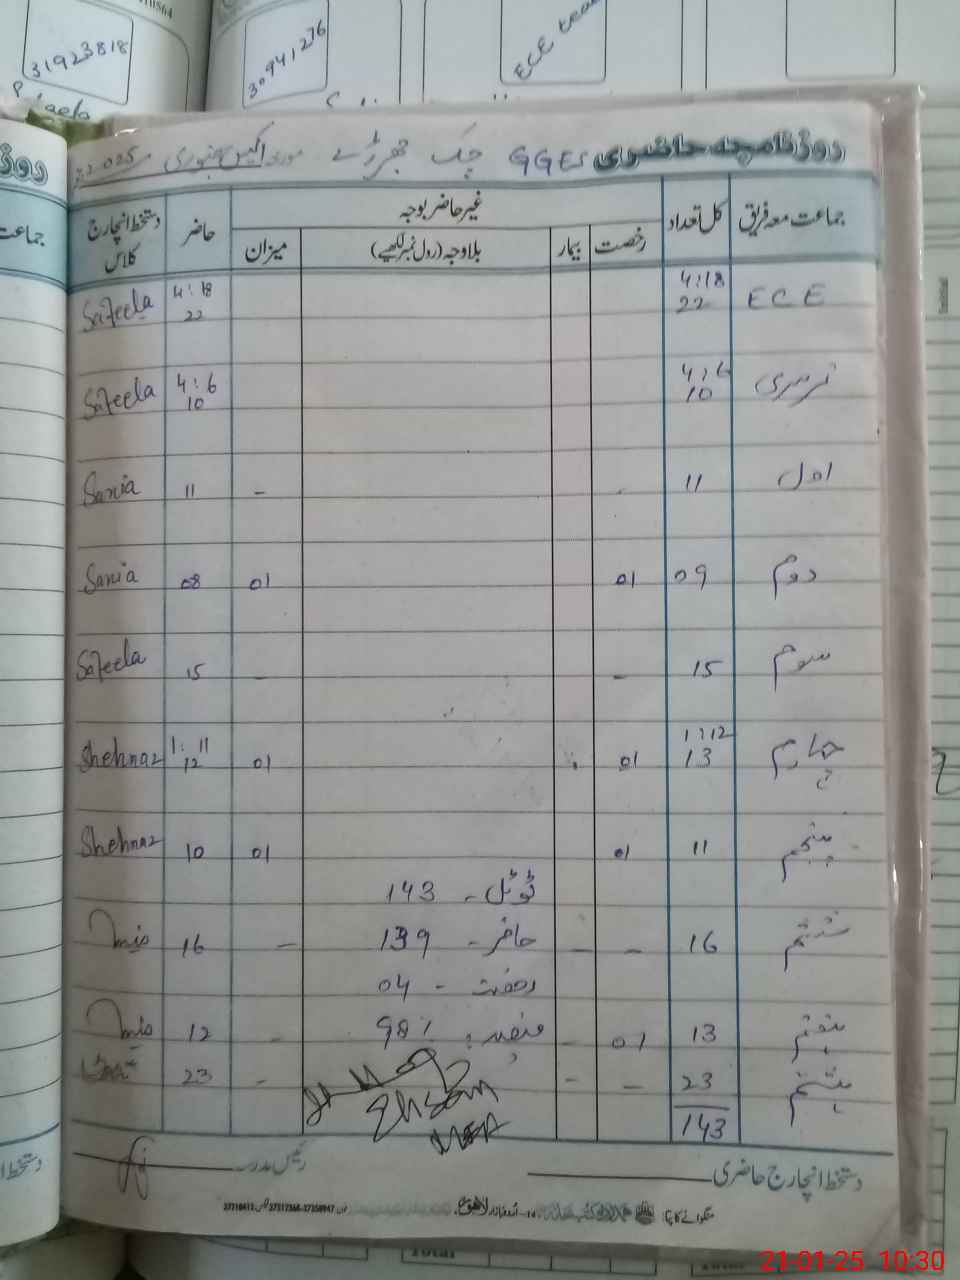 31923818
30941276
ECE
روزنامچہ حاضری GGES چک جھمرٹے مورخہ اکیس جنوری 2025
جماعت معہ فریق کل تعداد غیر حاضر بوجہ حاضر دستخط انچارج کلاس
رخصت بیمار بلاوجہ (رول نمبر لکھیے) میزان
ECE 4:18 22 4:18 22 Safeela
نرسری 4:6 10 4:6 10 Safeela
اول 11 - 11 Sania
دوم 09 01 01 08 Sania
سوم 15 - - 15 Safeela
چہارم 1:12 13 01 01 1:11 12 Shehnaz
پنجم 11 01 01 10 Shehnaz
ٹوٹل - 143
ششم 16 - - حاضر - 139 - 16
رخصت - 04
ہفتم 13 01 - فیصد : 98% - 12
ہشتم 23 - - - 23
143
Ehsan
دستخط انچارج حاضری رئیس مدرسہ
منگوانے کا پتہ: لاہور
Total
21-01-25 10:30